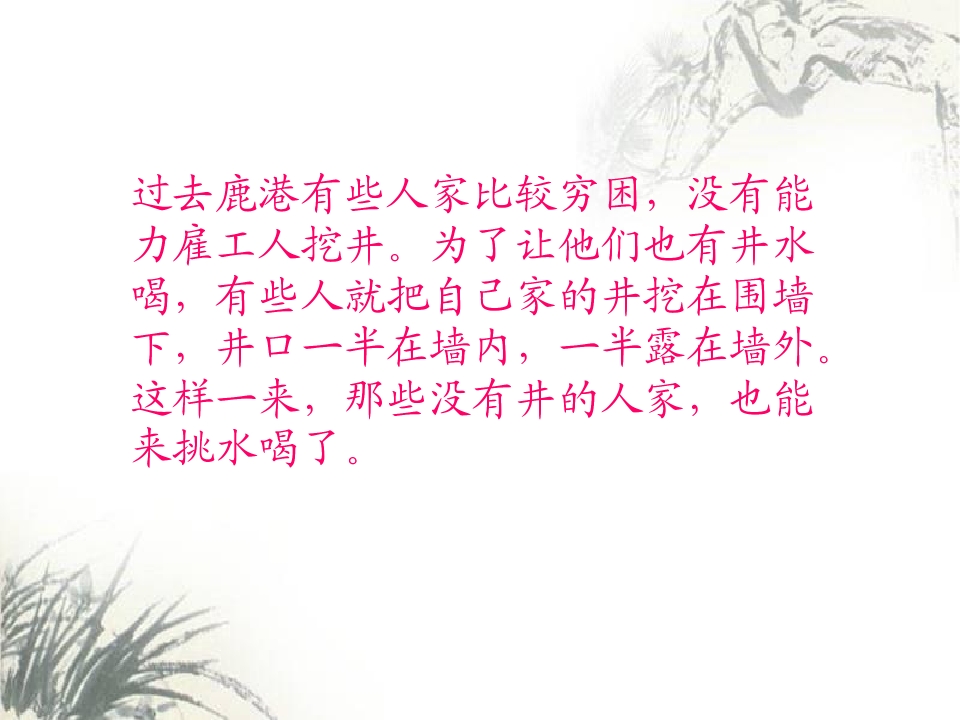 过去鹿港有些人家比较穷困，没有能
力雇工人挖井。为了让他们也有井水
喝，有些人就把自己家的井挖在围墙
下，井口一半在墙内，一半露在墙外。
这样一来，那些没有井的人家，也能
来挑水喝了。